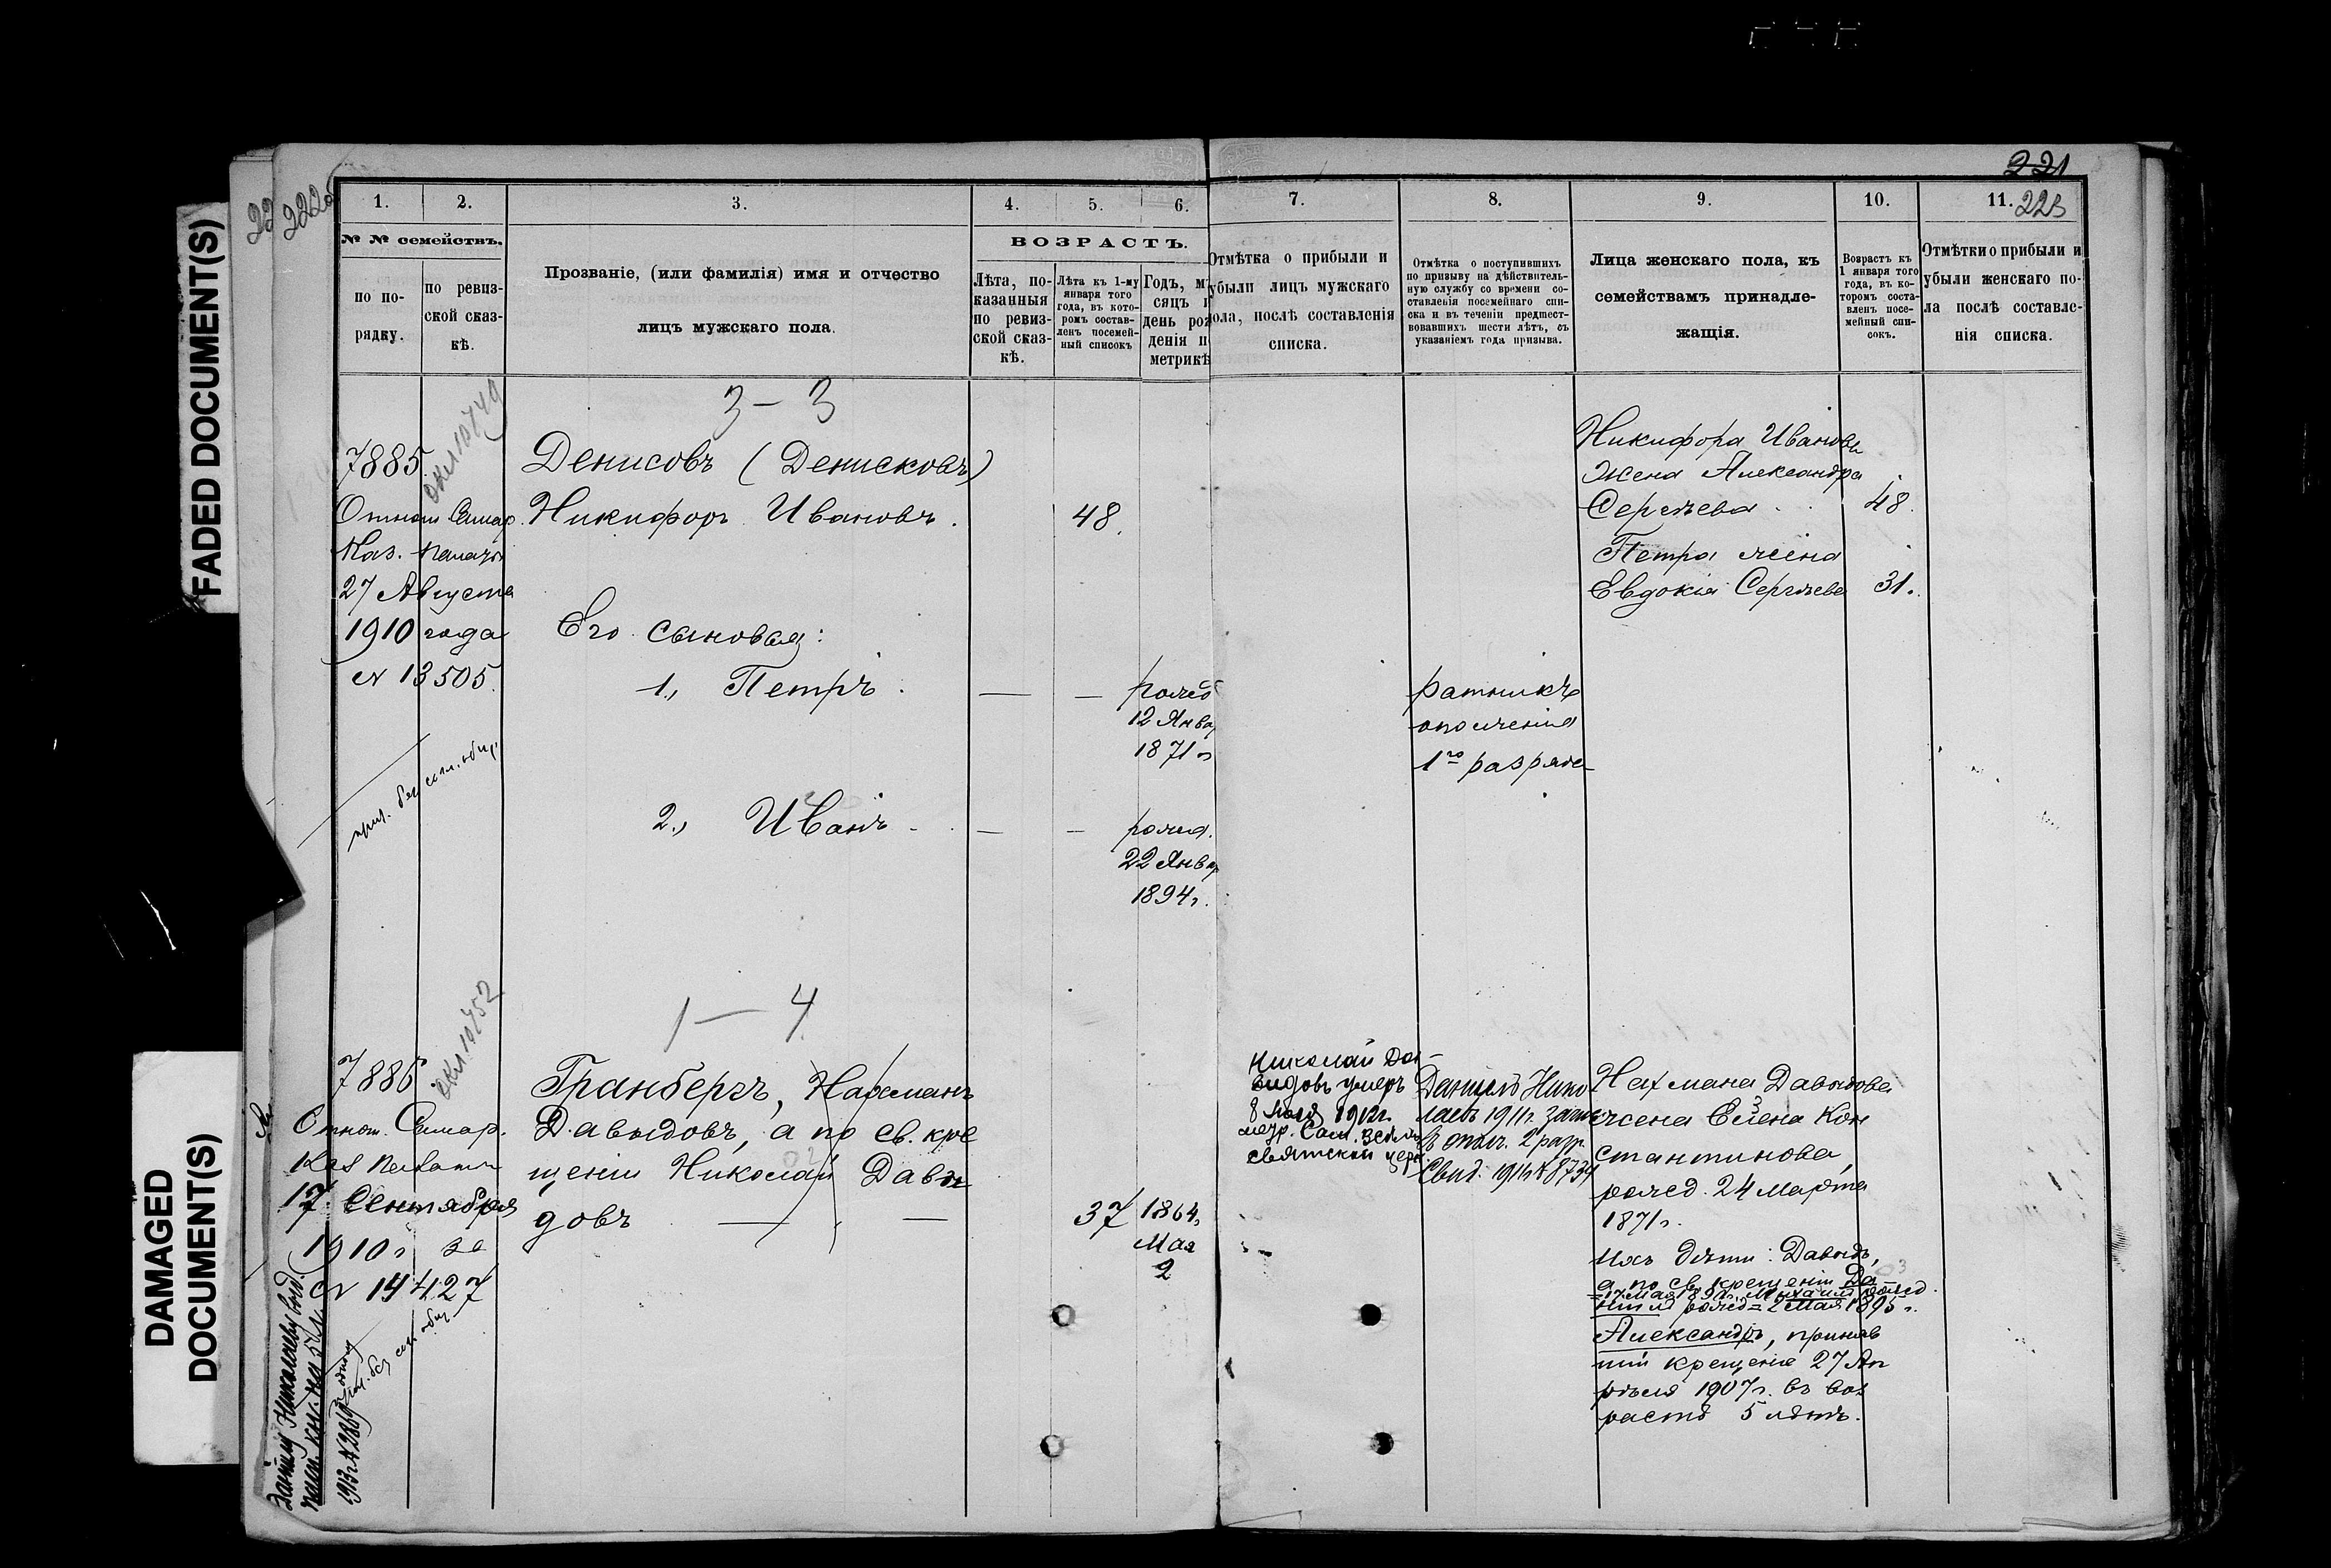 FADED DOCUMENT(S)
DAMAGED
DOCUMENT(S)
221
223
1.
2.
3.
4.
5.
6.
7.
8.
9.
10.
11.
№ № семействъ.
по по-
рядку.
по ревиз-
ской сказ-
кѣ.
Прозваніе, (или фамилія) имя и отчество
лицъ мужскаго пола.
ВОЗРАСТЪ.
Лѣта, по-
казанныя
по ревиз-
ской сказ-
кѣ.
Лѣта къ 1-му
января того
года, въ кото-
ромъ состав-
ленъ посемей-
ный списокъ
Годъ, м
сяцъ и
день рож
денія п
метрикѣ
Отмѣтка о прибыли и
убыли лицъ мужскаго
пола, послѣ составленія
списка.
Отмѣтка о поступившихъ
по призыву на дѣйствитель-
ную службу со времени со-
ставленія посемейнаго спи-
ска и въ теченіи предшест-
вовавшихъ шести лѣтъ, съ
указаніемъ года призыва.
Лица женскаго пола, къ
семействамъ принадле-
жащія.
Возрастъ къ
1 января того
года, въ ко-
торомъ соста-
вленъ посе-
мейный спи-
сокъ.
Отмѣтки о прибыли и
убыли женскаго по-
ла послѣ составле-
нія списка.
3 – 3
7885
окл 10749
Отнош Самар.
Каз. Палаты
27 Августа
1910 года
№ 13505.
Денисовъ (Денисковъ)
Никифоръ Ивановъ.
48.
Его сыновья:
1., Петръ.
— —
рожд
12 Янва
1871 г
2., Иванъ.
— —
рожд.
22 Янва
1894 г.
ратникъ
ополченія
1го разряда
Никифора Иванова
жена Александра
Сергѣева
48.
Петра жена
Евдокія Сергѣева
31.
1 — 4
7886
окл 10752
Отнош. Самар.
Каз Палаты
17 Сентября
1910 г за
№ 14427
Гранбергъ, Нахманъ
Давыдовъ, а по св. кре
щенію Николай Давы
довъ — —
37
1864,
Мая
2
Николай Да-
видовъ умеръ
8 1912г.
святской церк.
Данiилъ Нико
лаевъ 1911г. зачис
въ ополч. 2 разр.
Свид. 1911г № 8734
Нахмана Давыдова
жена Елена Кон
стантинова,
рожед. 24 Марта
1871 г.
ихъ дѣти: Давидъ,
а по св. крещенію Да-
нiилъ рожд = 2 Мая 1895 г.
Александръ, приняв
шій крещеніе 27 Ап
рѣля 1907 г. въ воз
растѣ 5 лѣтъ.
Данiилу Николаеву выд.